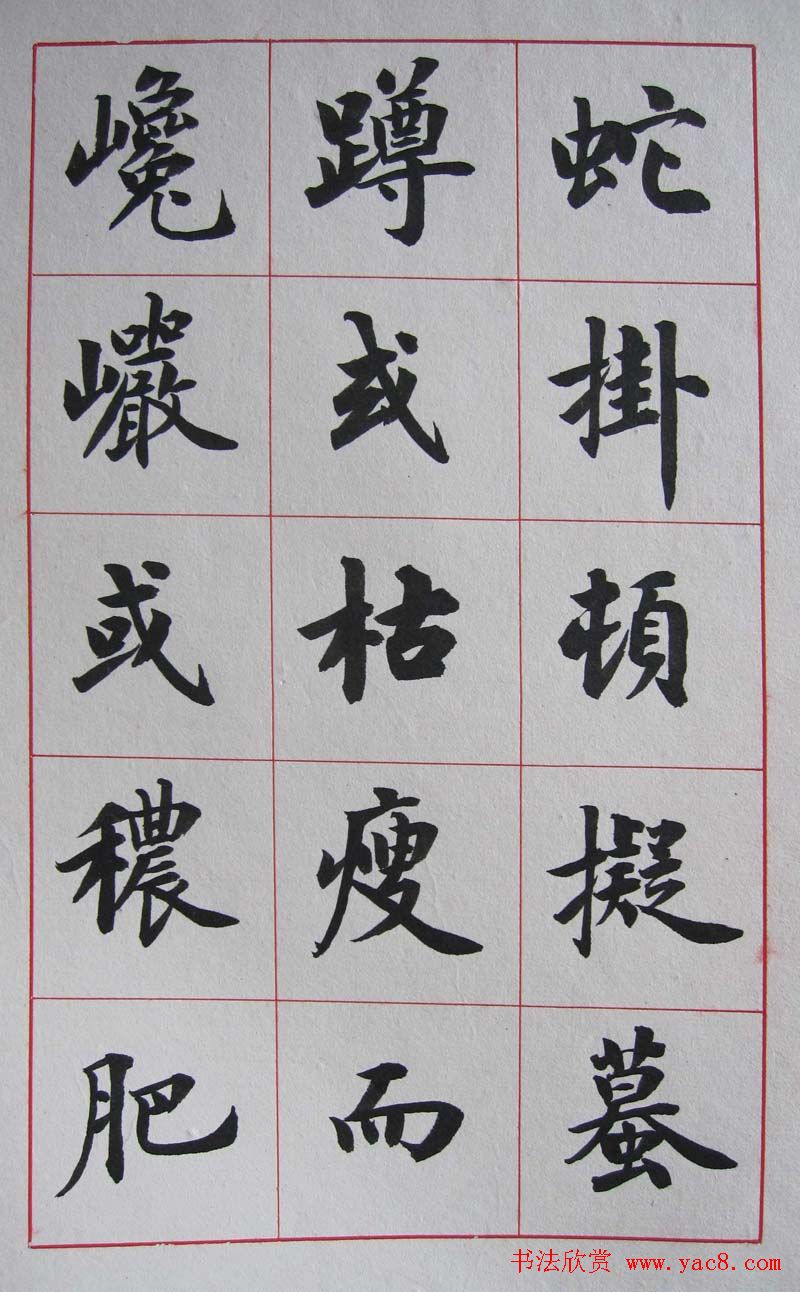 蛇掛頓擬蟇
蹲或枯瘦而
巉巖或穠肥
书法欣赏 www.yac8.com